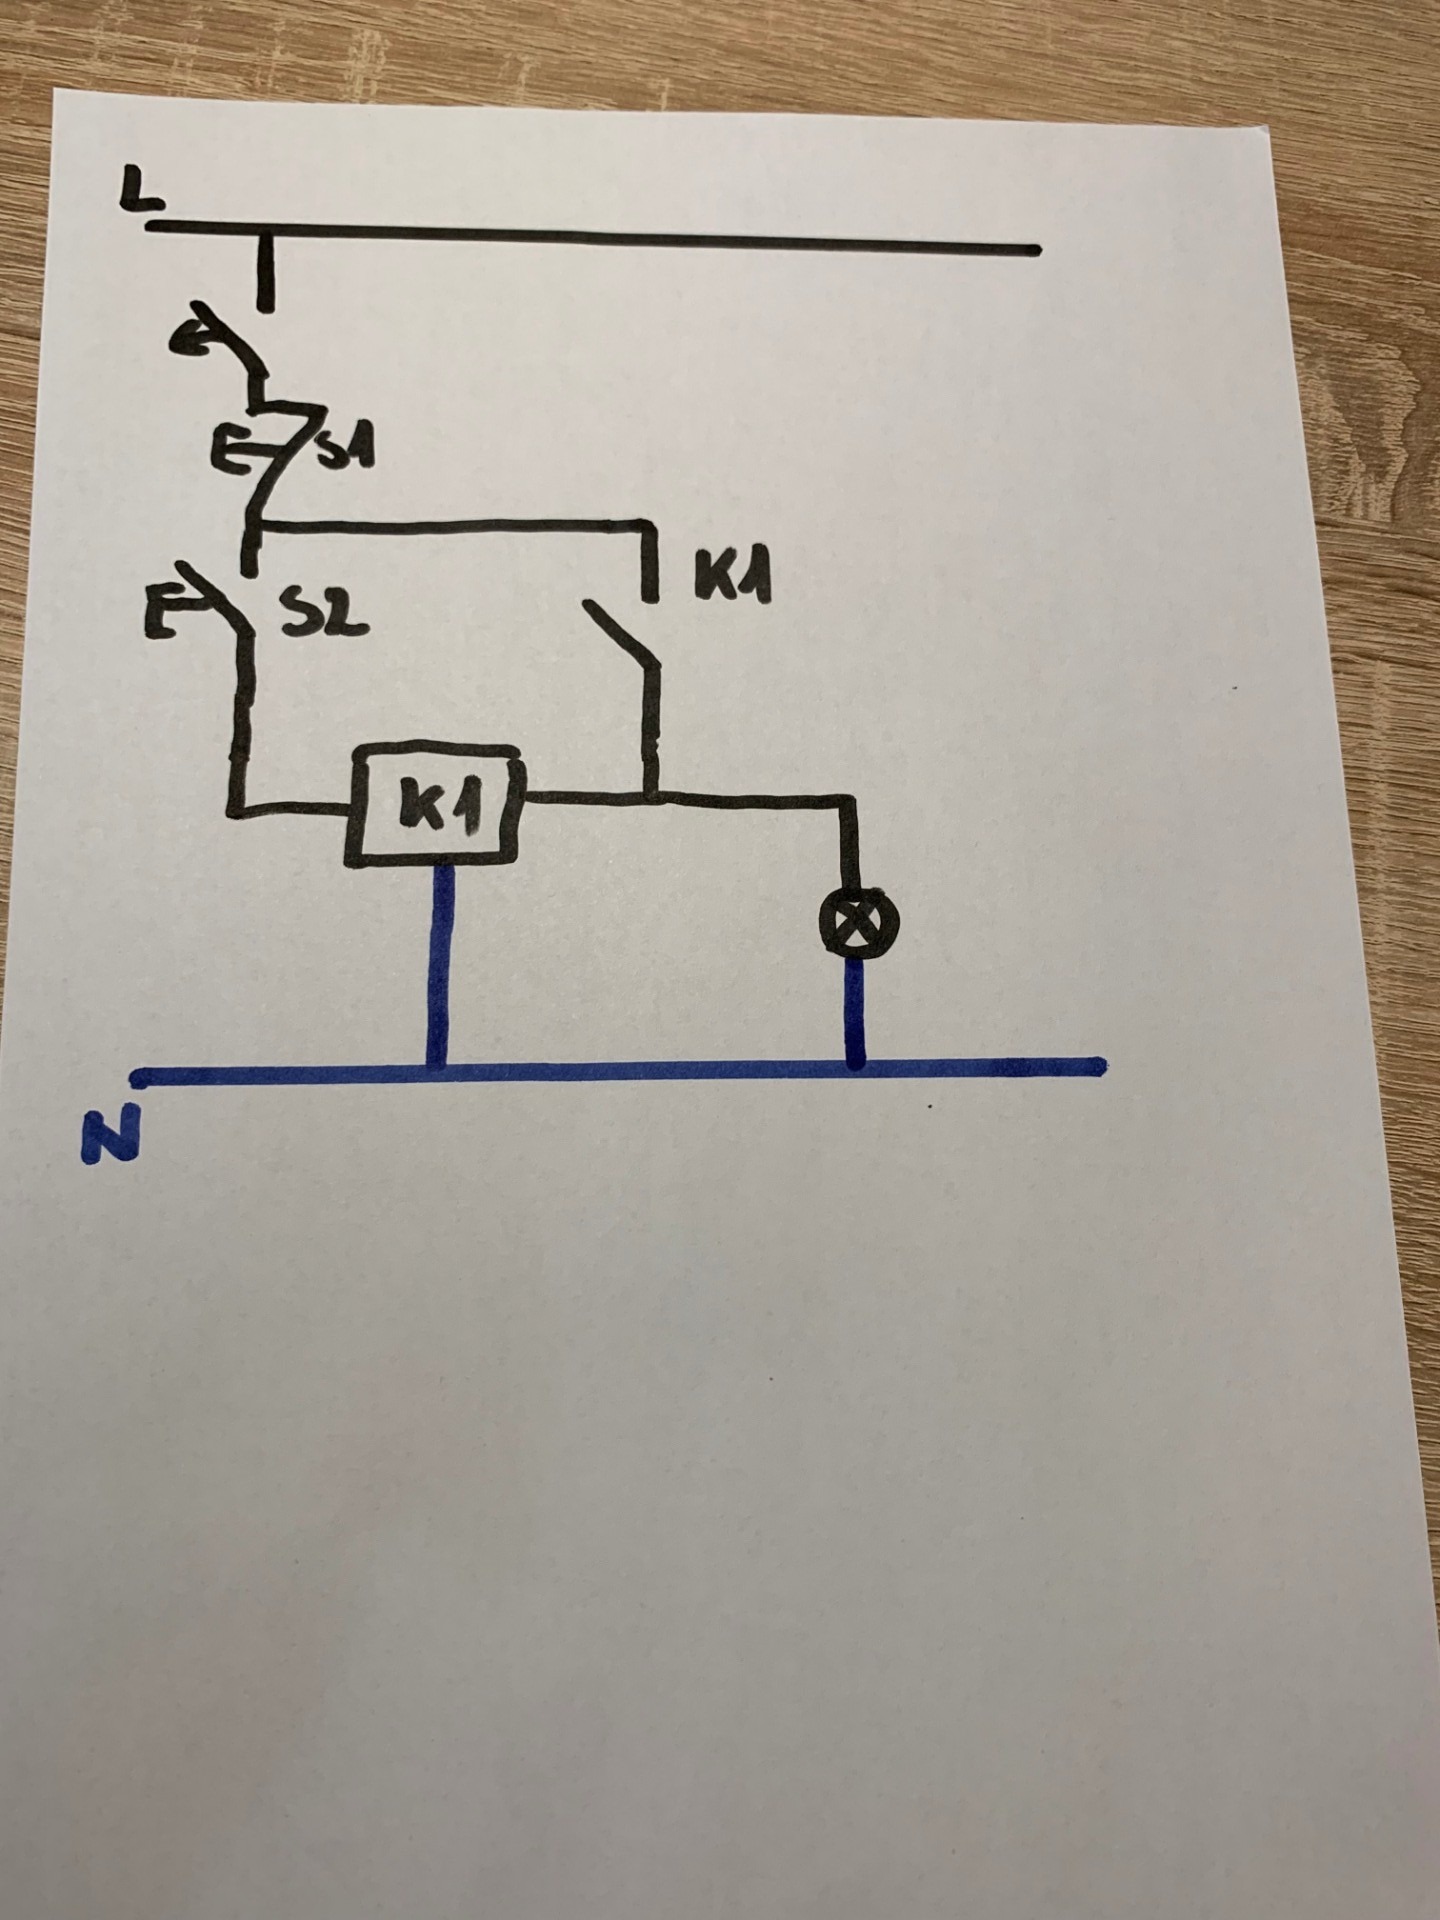 L
S1
K1
S2
K1
N